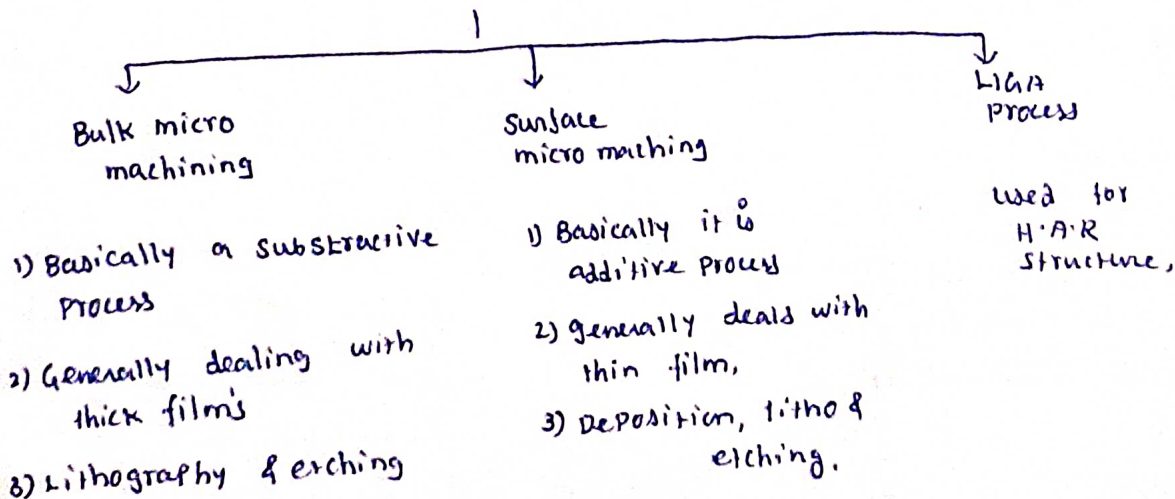 Bulk micro
machining
1) Basically a substractive
process
2) Generally dealing with
thick film's
3) Lithography & etching
Surface
micro maching
1) Basically it is
additive process
2) generally deals with
thin film,
3) Deposition, litho &
etching.
LIGA
process
used for
H.A.R
structure,